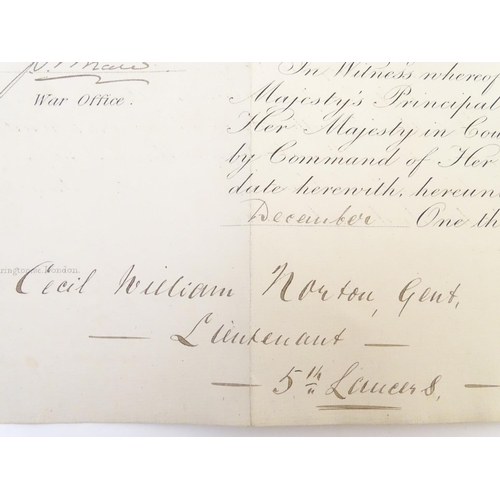 War Office.
In Witness whereof
Majesty's Principal
Her Majesty in Cou
by Command of Her
date herewith, hereun
December One th
rington & London.
Cecil William Norton, Gent,
— Lieutenant —
— 5th Lancers, —